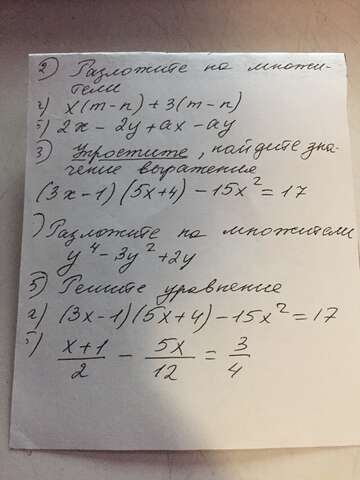 2) Разложите на множи-
тели
а) x(m-n)+3(m-n)
б) 2x-2y+ax-ay
3) Упростите, найдите зна-
чение выражения
(3x-1)(5x+4)-15x²=17
) Разложите на множители
y⁴-3y²+2y
5) Решите уравнение
а) (3x-1)(5x+4)-15x²=17
б) x+1/2 - 5x/12 = 3/4